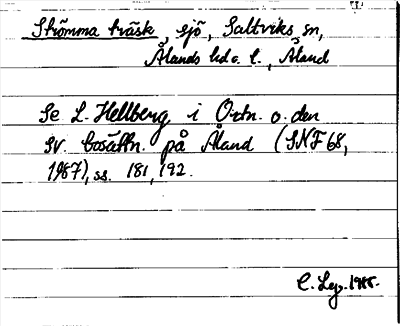 Strömma träsk, sjö, Saltviks sn,
Ålands hd o. l., Åland
Se L. Hellberg i Ortn. o. den
sv. bosättn. på Åland (SNF 68,
1987), ss. 181, 192.
C. Lej. 1988.